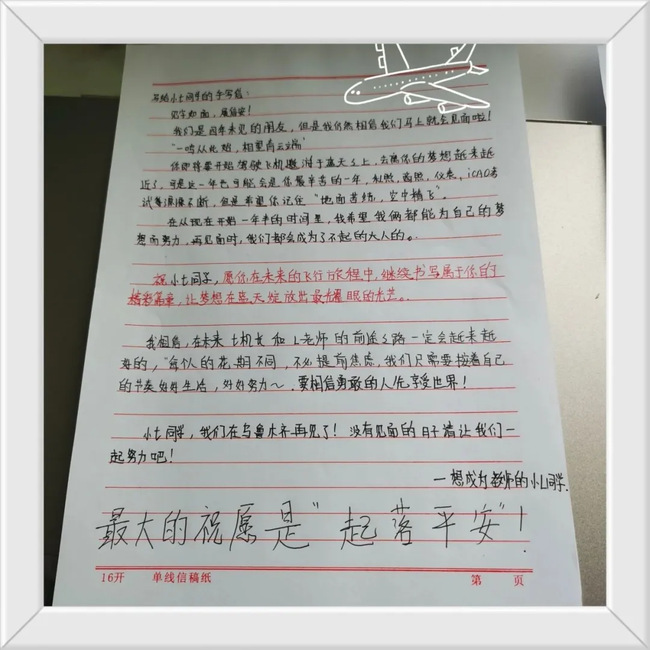 写给小七同学的手写信：
见字如面，展信安！
我们是四年未见的朋友，但是我仍然相信我们马上就会见面啦！
“一鸣从此始，相望青云端”
你即将要开始驾驶飞机遨游于蓝天之上，去离你的梦想越来越
近了，可是这一年也可能会是你最辛苦的一年，私照、商照、仪表、ICAO考
试等源源不断，但是希望你记住“地面苦练，空中精飞”。
在从现在开始一年半的时间里，我希望我俩都能为自己的梦
想而努力，再见面时，我们都会成为了不起的大人的。
祝小七同学，愿你在未来的飞行旅程中，继续书写属于你的
精彩篇章，让梦想在蓝天绽放出最耀眼的光芒。
我相信，在未来七机长和L老师的前途之路一定会越来越
好的，“每个人的花期不同，不必提前焦虑，我们只需要按着自己
的节奏好好生活，好好努力～，要相信勇敢的人先享受世界！
小七同学，我们在乌鲁木齐再见了！没有见面的日子请让我们一
起努力吧！
—想成为老师的小L同学.
最大的祝愿是“起落平安”！
16开 单线信稿纸 第 页